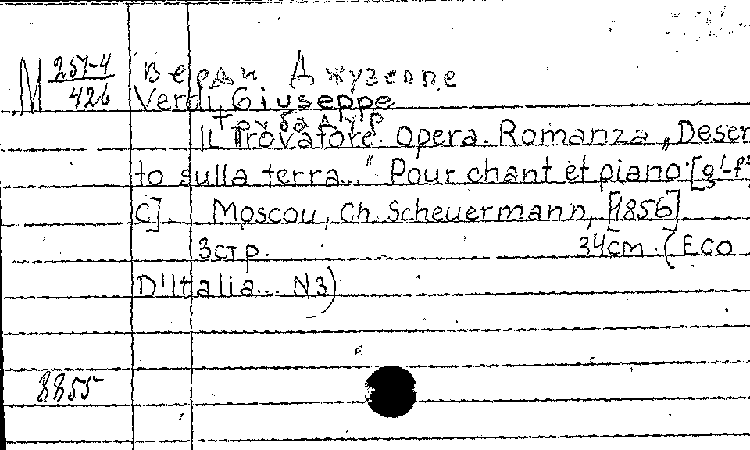 M 257-4/426
Верди Джузеппе
Verdi, Giuseppe
Трубадур
Il Trovatore. Opera. Romanza „Deser-
to sulla terra..." Pour chant et piano [g¹-f²
C]. Moscou, Ch. Scheuermann, [1856].
3стр. 34cm. (Eco
D'Italia... N3)
8855